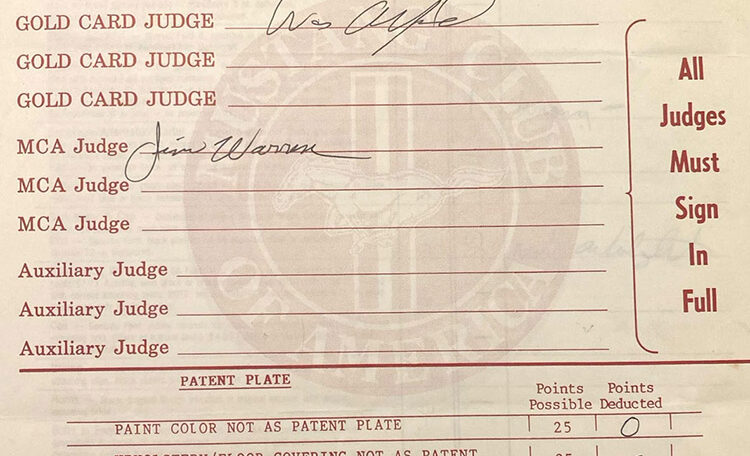 GOLD CARD JUDGE
GOLD CARD JUDGE
GOLD CARD JUDGE
MCA Judge Jim Warren
MCA Judge
MCA Judge
Auxiliary Judge
Auxiliary Judge
Auxiliary Judge
All
Judges
Must
Sign
In
Full
MUSTANG CLUB
OF AMERICA
PATENT PLATE
Points Points
Possible Deducted
PAINT COLOR NOT AS PATENT PLATE 25 0
UPHOLSTERY/FLOOR COVERING NOT AS PATENT